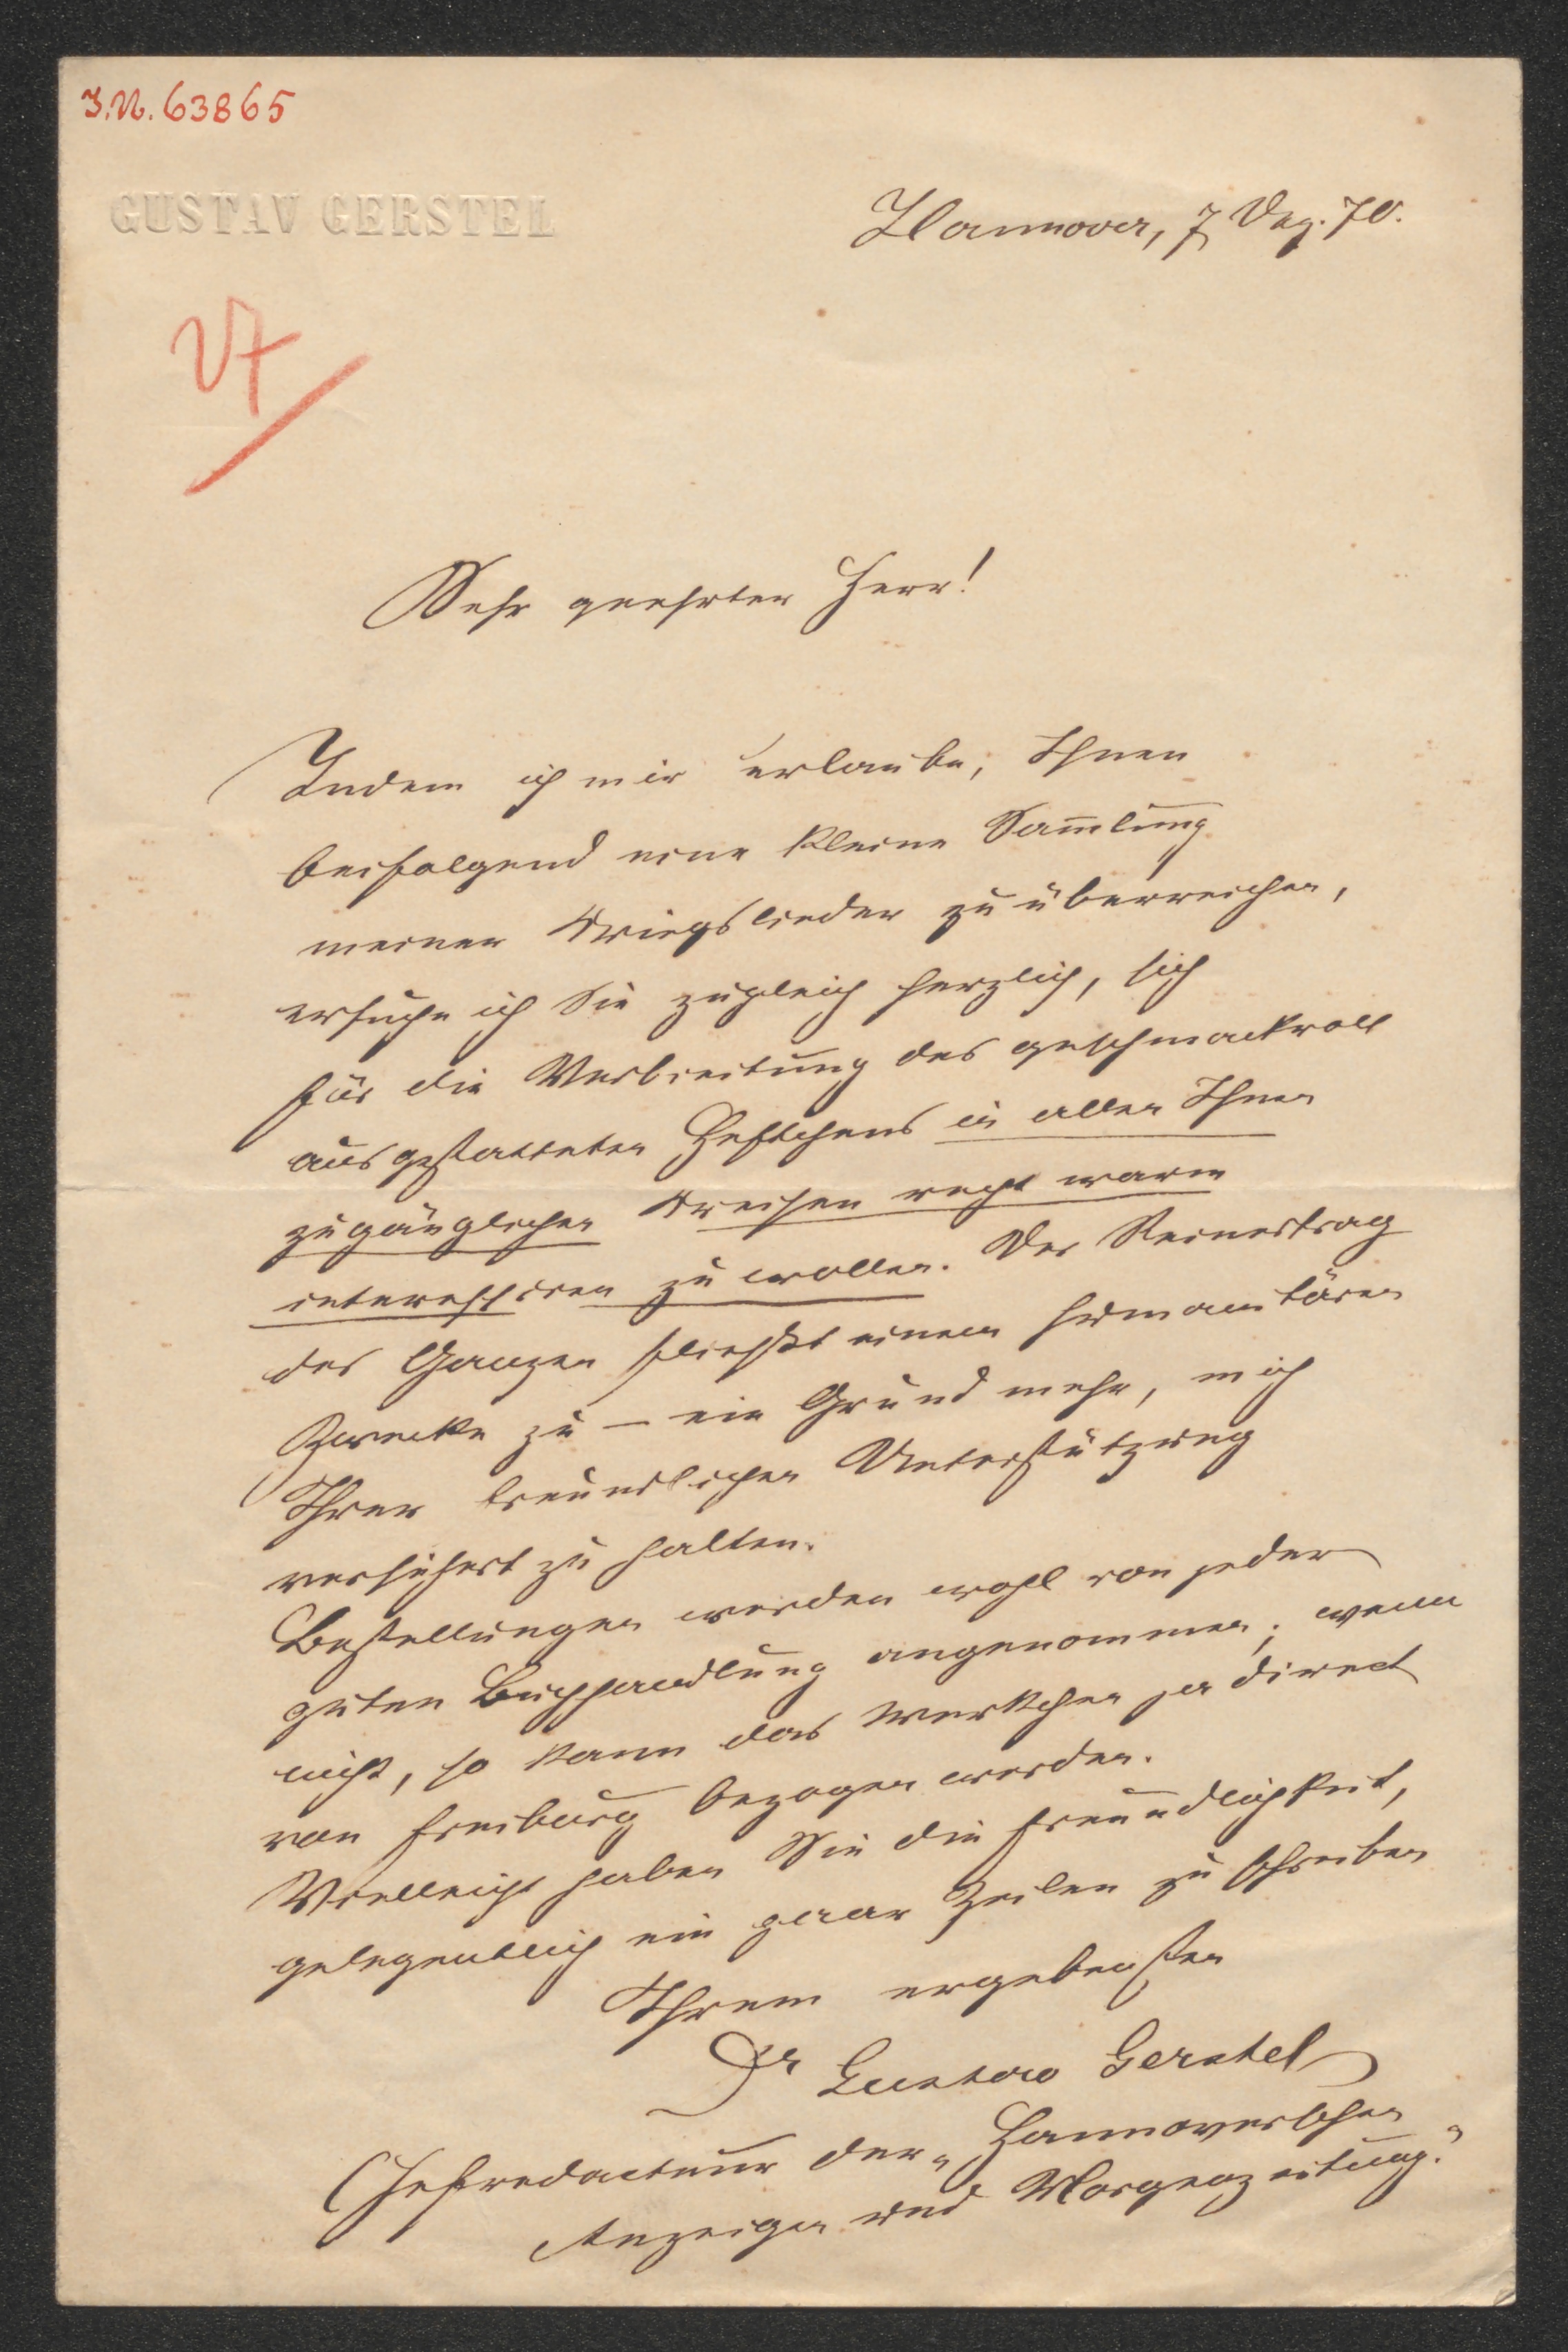 I.N. 63865
GUSTAV GERSTEL
Hannover, 7 Dez. 70.
Sehr geehrter Herr!
Indem ich mir erlaube, Ihnen
beifolgend eine kleine Sam̅lung
meiner Kriegslieder zu überreichen,
ersuche ich Sie zugleich herzlich, sich
für die Verbreitung des geschmackvoll
ausgestatteten Heftchens in allen Ihnen
zugänglichen Kreisen recht warm
interessiren zu wollen. Der Reinertrag
des Ganzen fließt einem humanitären
Zwecke zu — ein Grund mehr, mich
Ihrer freundlichen Unterstützung
versichert zu halten.
Bestellungen werden wohl von jeder
guten Buchhandlung angenommen; wenn
nicht, so kann das Werkchen ja direct
von Freiburg bezogen werden.
Vielleicht haben Sie die Freundlichkeit,
gelegentlich ein paar Zeilen zu schreiben
Ihrem ergebensten
Dr Gustav Gerstel
Chefredacteur der „Hannoverschen
Anzeigen und Morgenzeitung."